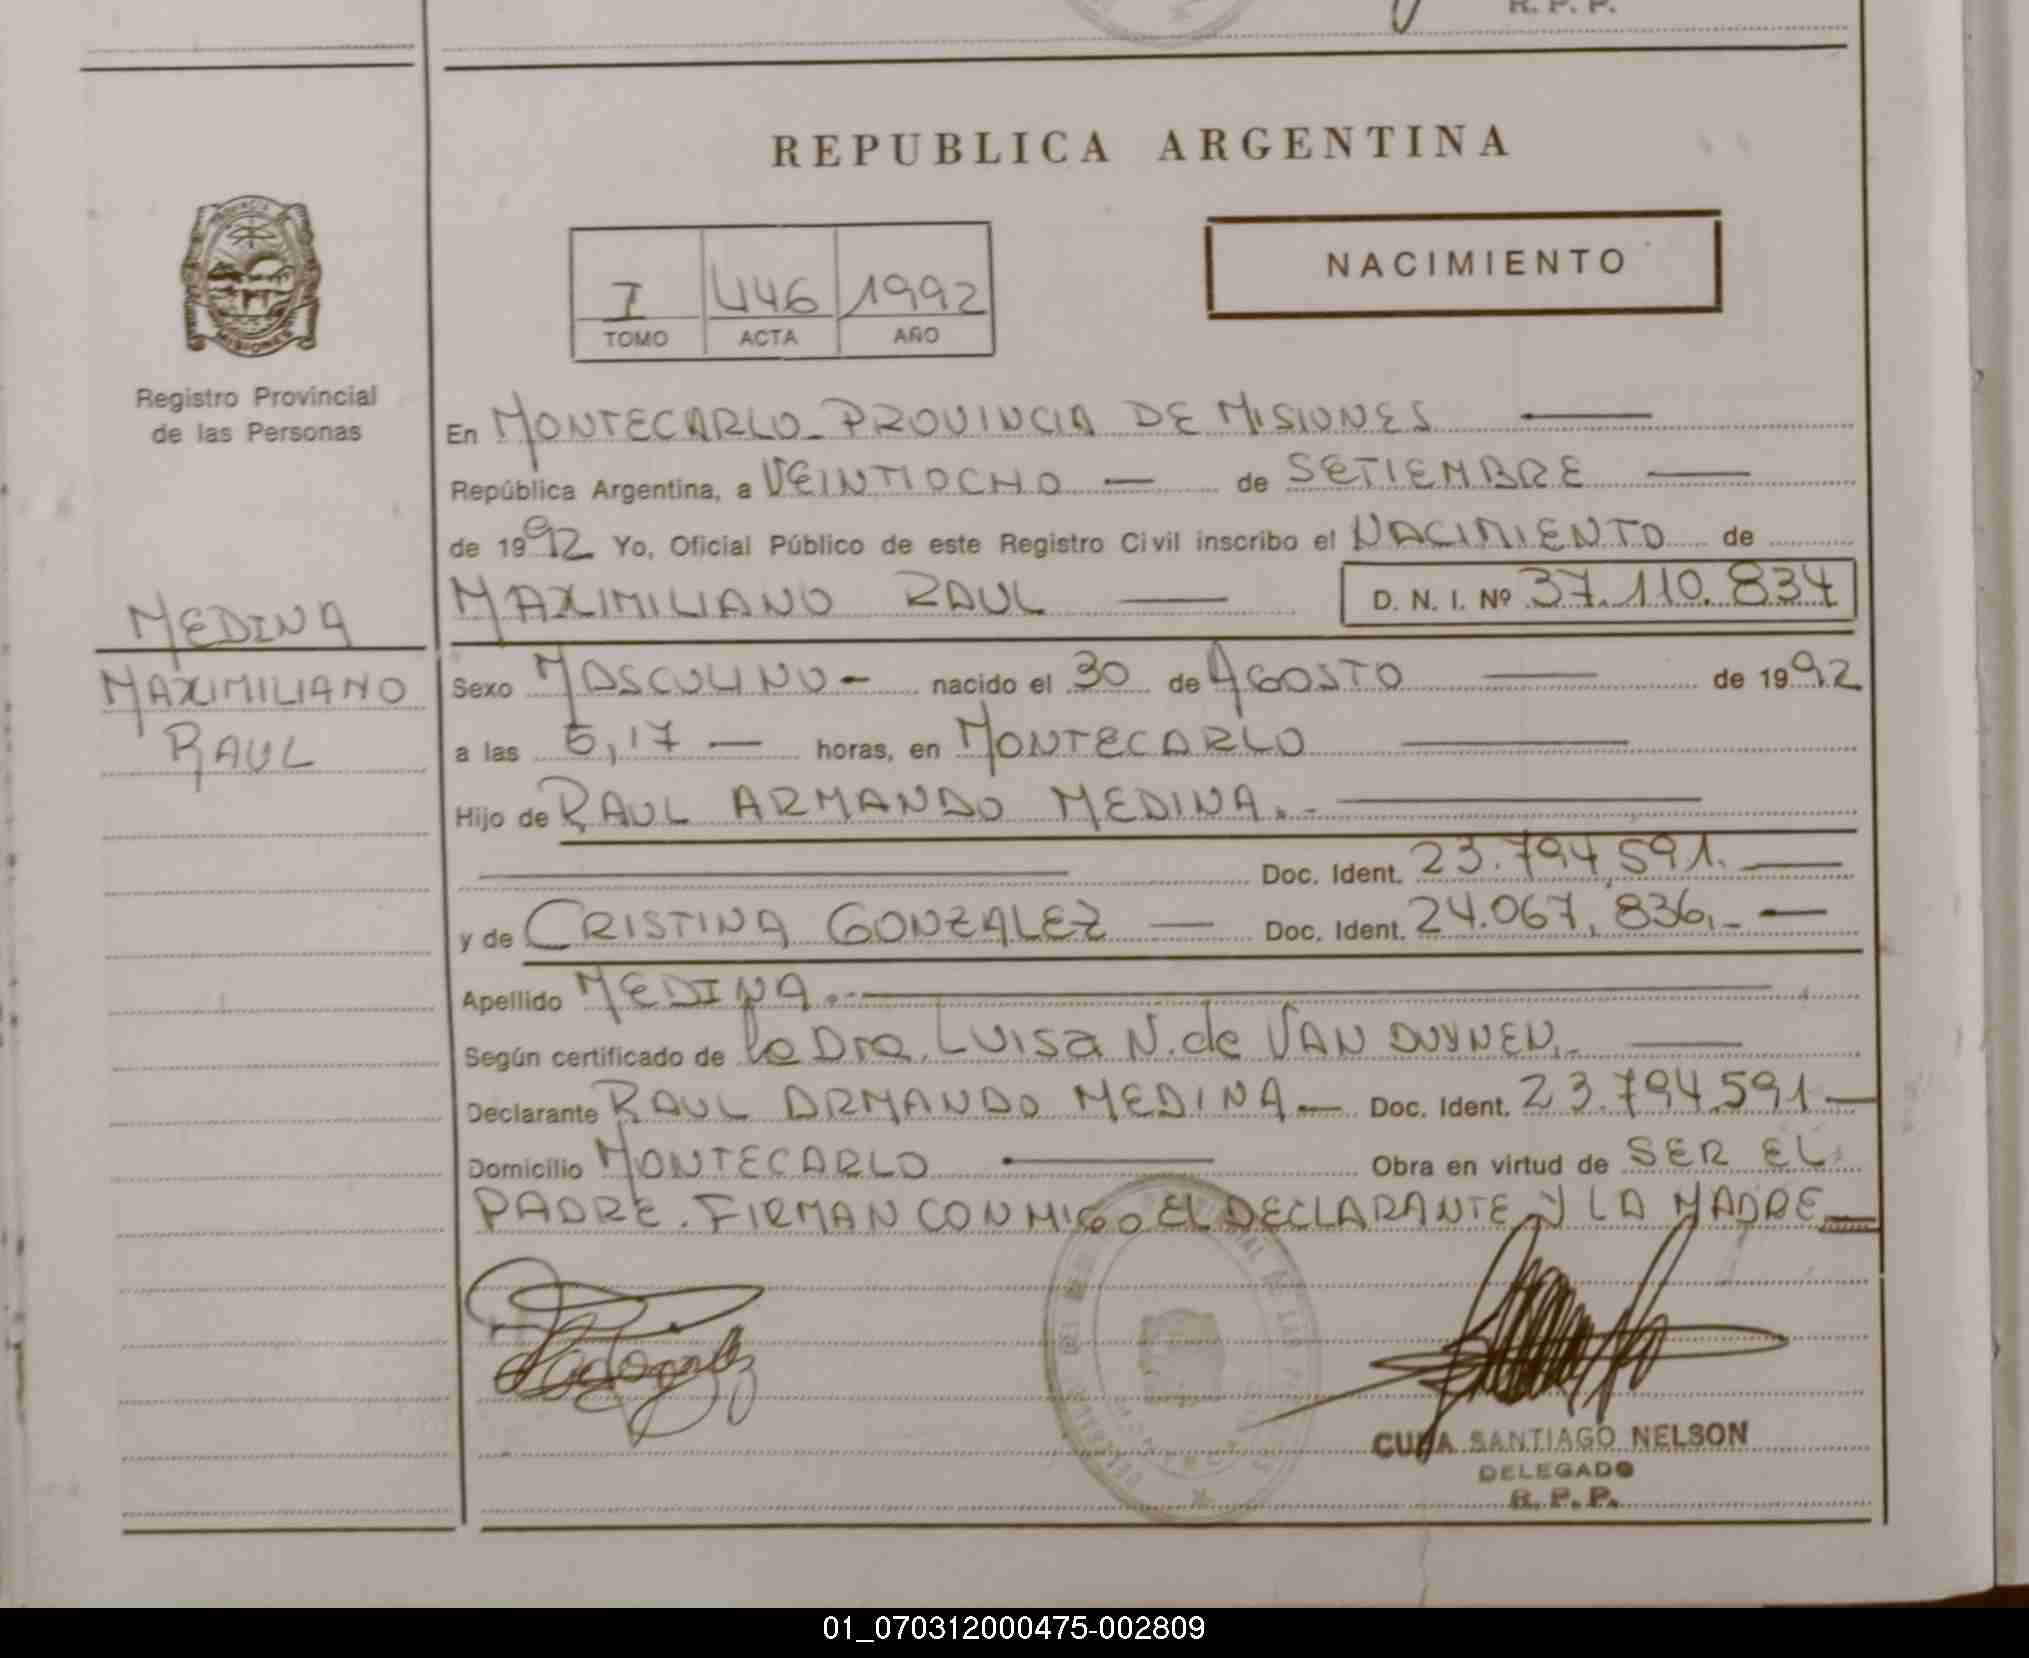 R. P. P.
REPUBLICA ARGENTINA
PROVINCIA
MISIONES
Registro Provincial
de las Personas
I 446 1992
TOMO ACTA AÑO
NACIMIENTO
En MONTECARLO - PROVINCIA DE MISIONES
República Argentina, a VEINTIOCHO — de SETIEMBRE
de 1992 Yo, Oficial Público de este Registro Civil inscribo el NACIMIENTO de
MAXIMILIANO RAUL — D. N. I. Nº 37.110.834
MEDINA
MAXIMILIANO
RAUL
Sexo MASCULINO - nacido el 30 de AGOSTO — de 1992
a las 5,17 — horas, en MONTECARLO
Hijo de RAUL ARMANDO MEDINA.-
Doc. Ident. 23.794.591.
y de CRISTINA GONZALEZ — Doc. Ident. 24.067.836.-
Apellido MEDINA.-
Según certificado de la Dra. LUISA N. de VAN DUYNEN.-
Declarante RAUL ARMANDO MEDINA — Doc. Ident. 23.794.591
Domicilio MONTECARLO — Obra en virtud de SER EL
PADRE. FIRMAN CONMIGO EL DECLARANTE Y LA MADRE
SANTIAGO NELSON
DELEGADO
R. P. P.
01_070312000475-002809